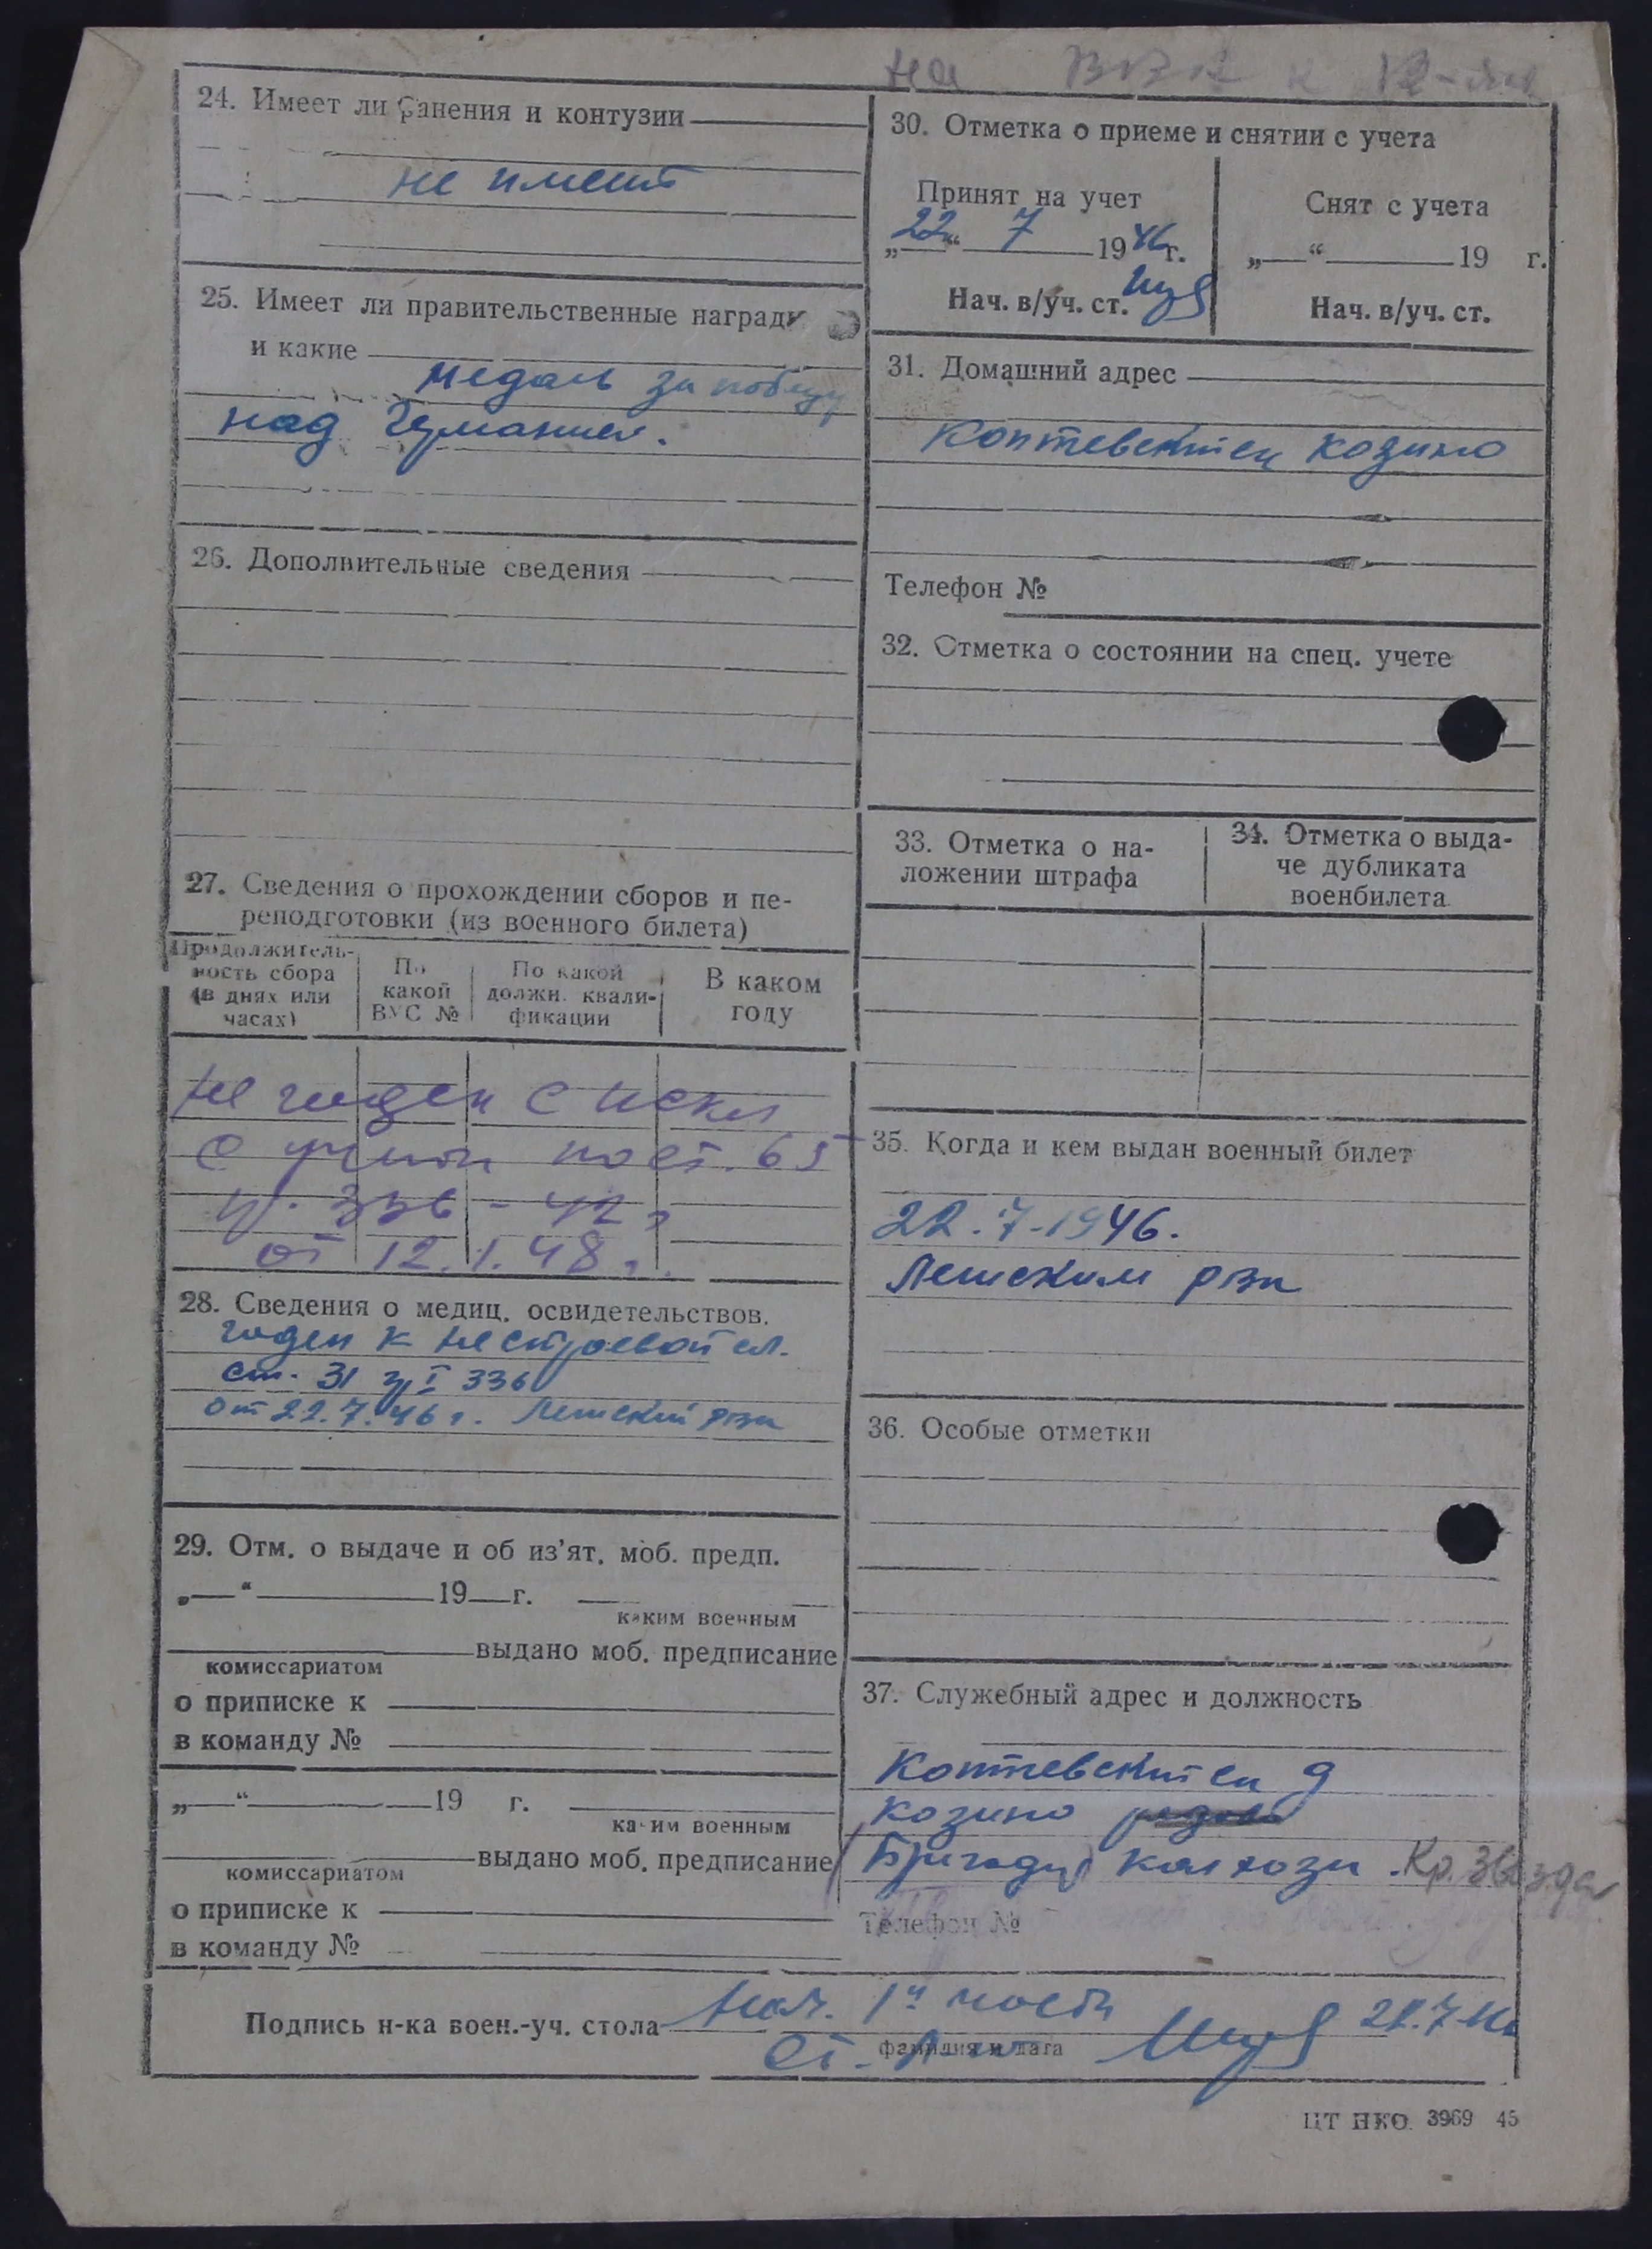 на ВВК к
24. Имеет ли ранения и контузии
не имеет
25. Имеет ли правительственные награды
и какие
медаль за победу
над Германией.
26. Дополнительные сведения
27. Сведения о прохождении сборов и пе-
реподготовки (из военного билета)
Продолжитель-
ность сбора
(в днях или
часах)
По
какой
ВУС №
По какой
должн. квали-
фикации
В каком
году
не годен с искл
с учета по ст. 65
пр. 336 - 42 г
от 12.1.48 г.
28. Сведения о медиц. освидетельствов.
годен к нестроевой сл.
ст. 31 гр I 336
от 22.7.46 г. Лешский рвк
29. Отм. о выдаче и об из'ят. моб. предп.
„—“ 19—г.
каким военным
выдано моб. предписание
комиссариатом
о приписке к
в команду №
„—“ 19 г.
каким военным
выдано моб. предписание
комиссариатом
о приписке к
в команду №
30. Отметка о приеме и снятии с учета
Принят на учет
„22“ 7 1946г.
Нач. в/уч. ст.
Снят с учета
„—“ 19 г.
Нач. в/уч. ст.
31. Домашний адрес
Коптевский с/с Козино
Телефон №
32. Отметка о состоянии на спец. учете
33. Отметка о на-
ложении штрафа
34. Отметка о выда-
че дубликата
военбилета
35. Когда и кем выдан военный билет
22.7-1946.
Лешским рвк
36. Особые отметки
37. Служебный адрес и должность
Коптевский с/с д
Козино
Бригадир колхоза Кр. Звезда
Телефон №
Подпись н-ка воен.-уч. стола Нач. 1й части
фамилия и дата
Ст. л-т 22.7.46
ЦТ НКО 3969 45